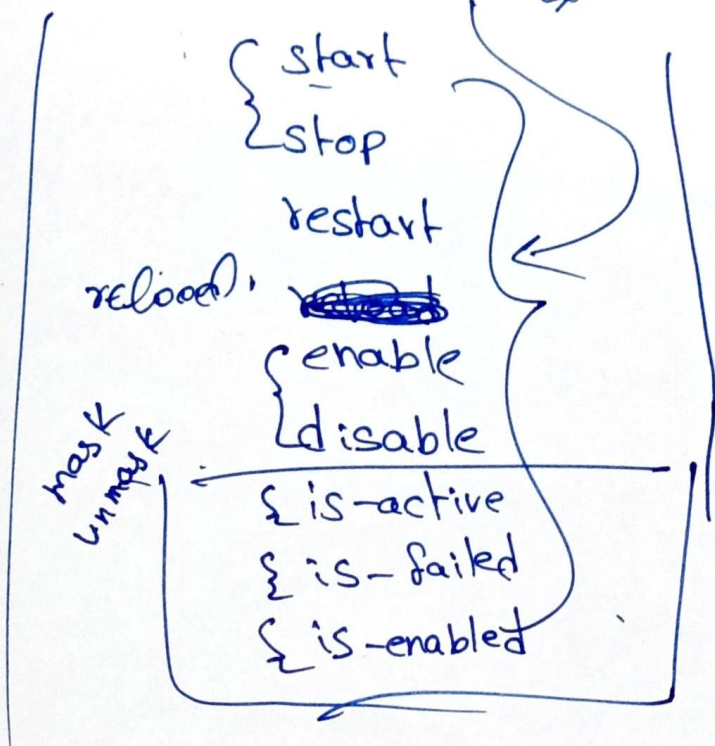 start
stop
restart
reload
enable
disable
mask
unmask
is-active
is-failed
is-enabled